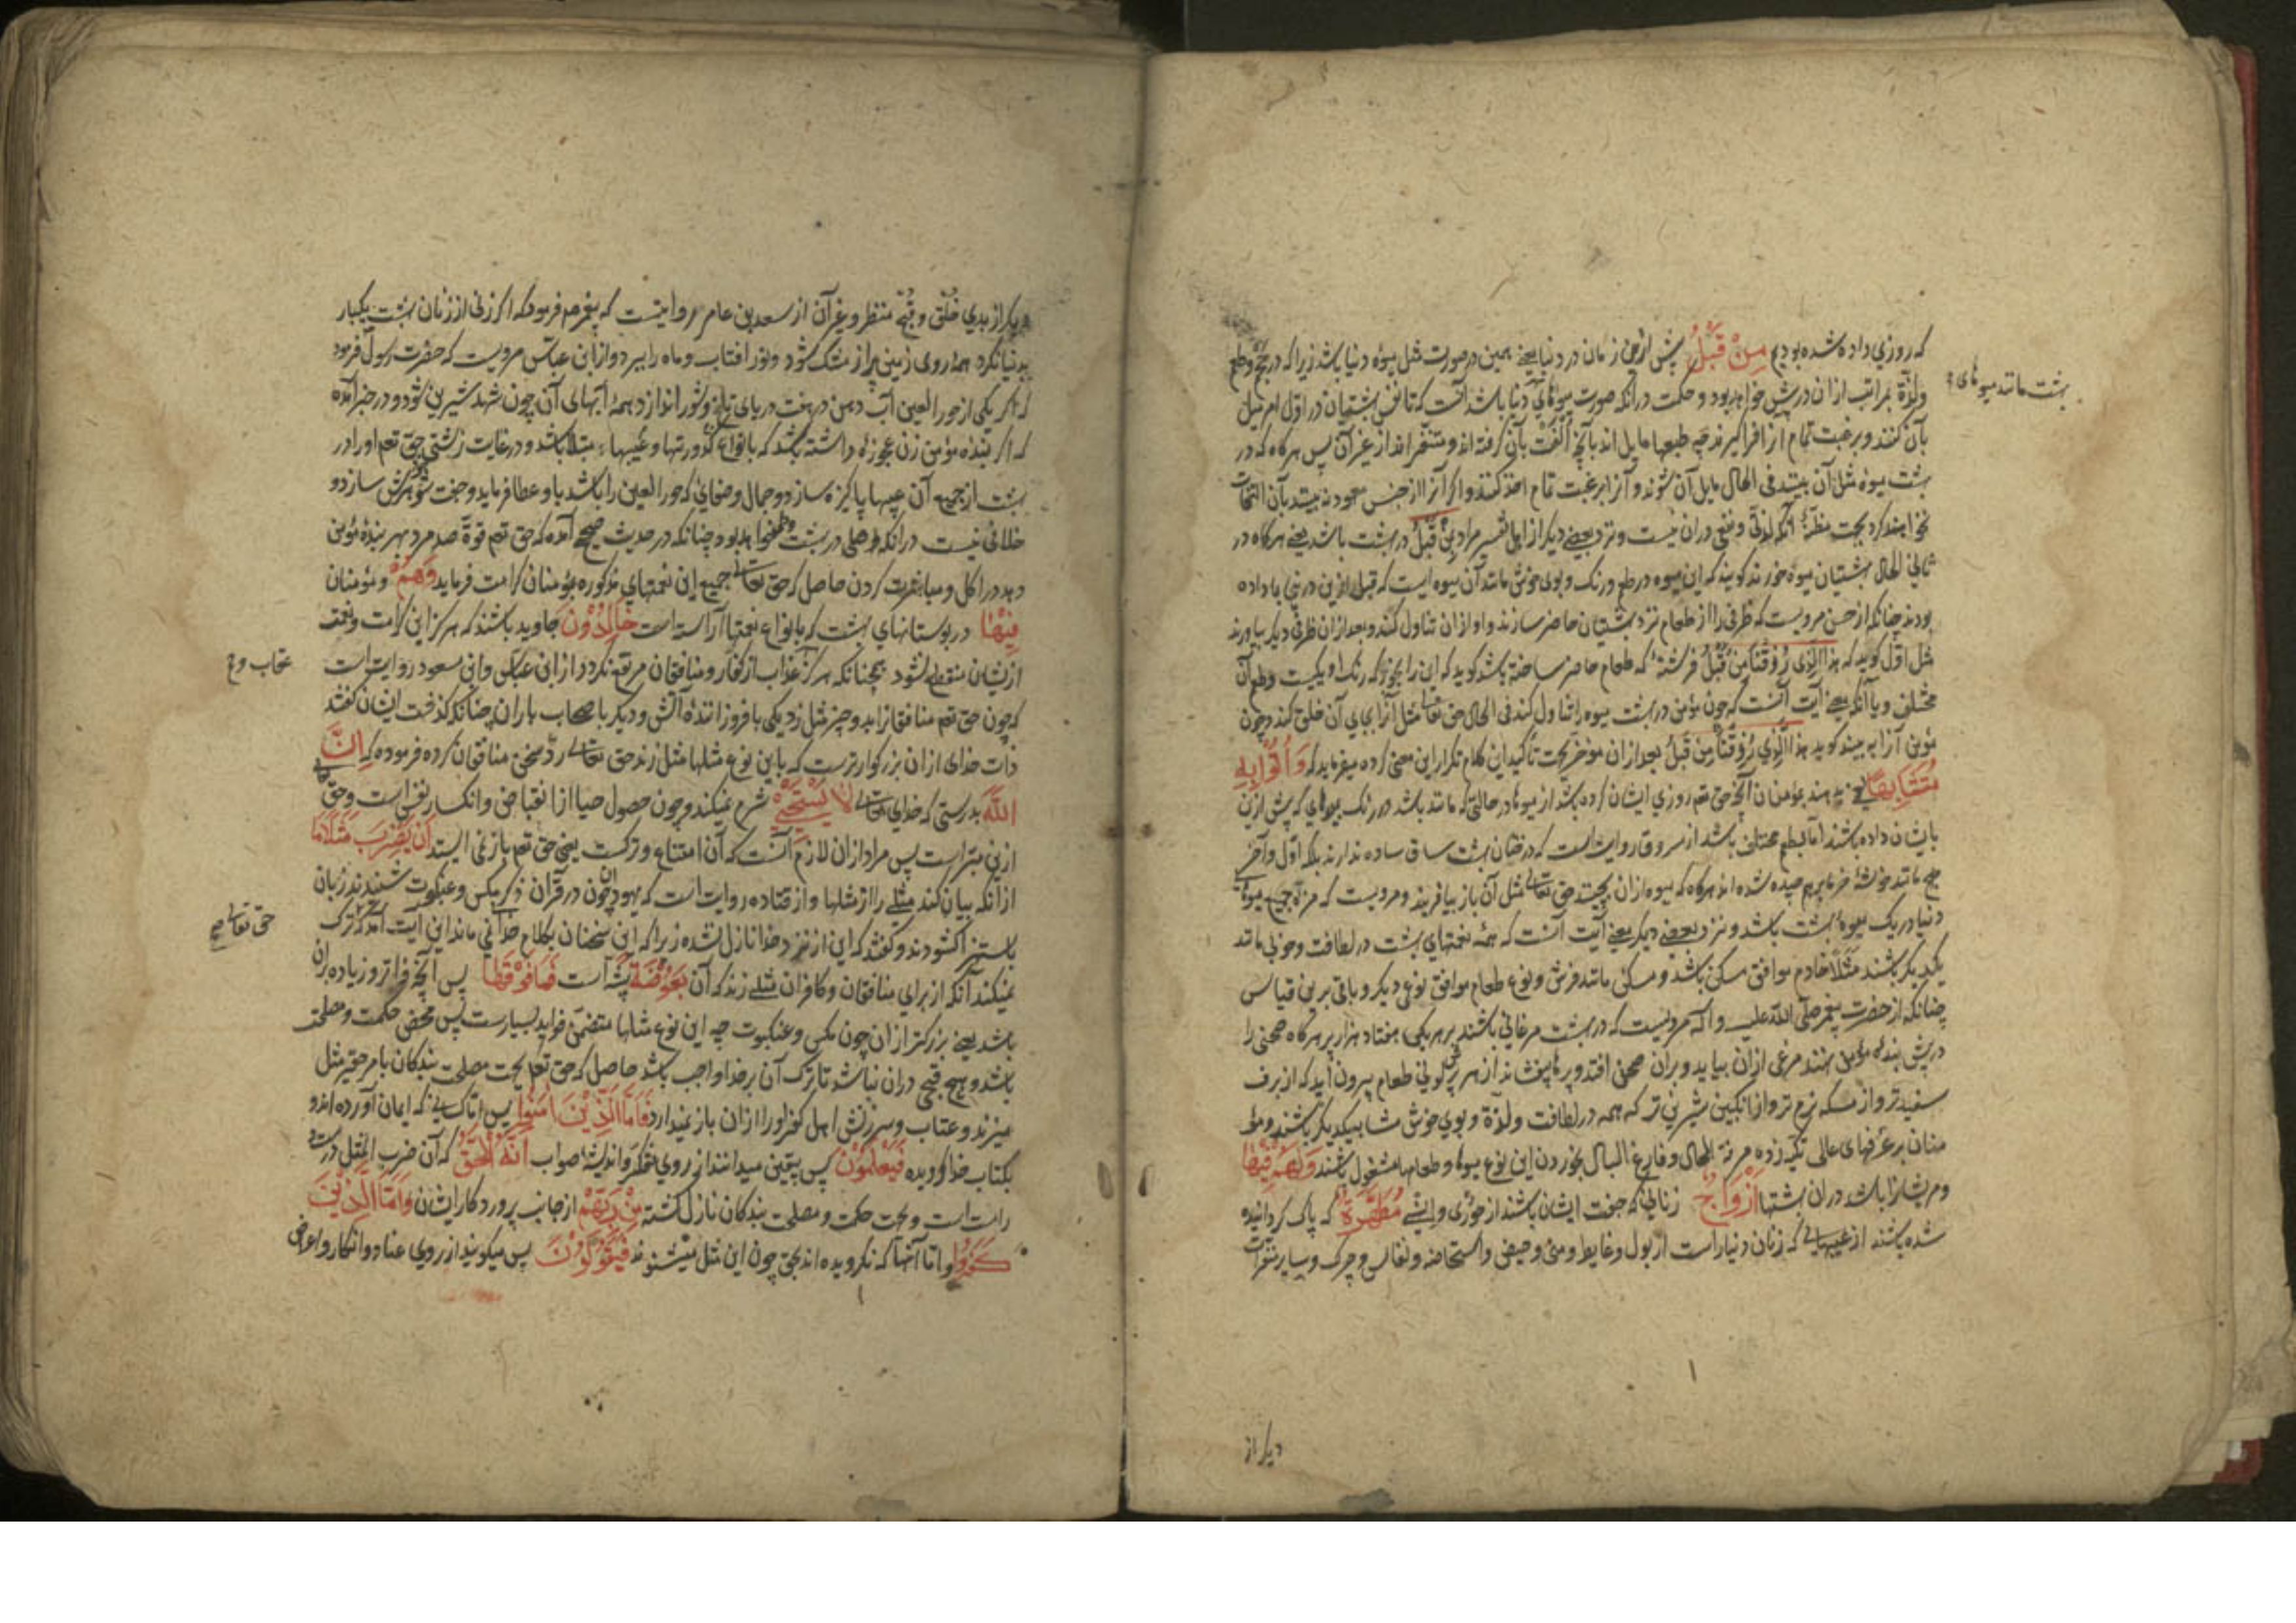 که روزی داده شده بودیم مِنْ قَبْلُ پیش ازین زمان در دنیا یعنی همین در صورت مثل میوه دنیا باشد زیرا که در
بهشت مانند میوهای
ولذة بمراتب ازان درپیش خواهد بود و حکمت در آنکه صورت میوهای دنیا باشد آنست که تا نفس بهشتیان در اول امر میل
بآن کنند و برغبت تمام آنرا فراگیرند چه طبعها مایل اند بآنچه الفت بآن گرفته اند و متنفر اند از غیر آن پس هرگاه که در
بهشت میوه مثل آن بینند فی الحال مایل آن شوند و آنرا برغبت تمام اخذ کنند و اگر آنرا از جنس معهود نه بینند بآن التفات
نخواهند کرد بجهت مظنّهٔ آنکه لذتی و نفعی دران نیست و نزد بعضی دیگر از اهل تفسیر مراد مِنْ قَبْلُ در بهشت باشد یعنی هرگاه در
ثانی الحال بهشتیان میوه خورند گویند که این میوه در طعم و رنگ و بوی خوش مانند آن میوه ایست که قبل ازین درینجا بما داده
بودند چنانکه از حسن مرویست که ظرفی را از طعام نزد بهشتیان حاضر سازند و او ازان تناول کند و بعد ازان ظرفی دیگر بیاورند
مثل اول گوید که هذا الَّذِی رُزِقْنَا مِنْ قَبْلُ فرشتهٔ که طعام حاضر ساخته باشد گوید که این را بخور که رنگ او یکیست و طعم آن
مختلف و یا آنکه معنی آیت آنست که چون مؤمن در بهشت میوه را تناول کند فی الحال حق تعالی مثل آنرا بجای آن خلق کند و چون
مؤمن آنرا به بیند گوید هذا الَّذِی رُزِقْنَا مِنْ قَبْلُ بعد ازان مؤخر بجهت تأکید این کلام تکرار این معنی کرده میفرماید که وَأُتُوا بِهِ
مُتَشَابِهًا یعنی بدهند بمؤمنان آنچه حق تعم روزی ایشان کرده باشد از میوها در حالتی که مانند باشد در رنگ بمیوهای که پیش ازین
بایشان داده باشند اما بطعم مختلف باشد از مسروق روایت است که درختان بهشت ساق ساده ندارند بلکه اول و آخر
همه مانند خوشهٔ خرما برهم چیده شده اند هرگاه که میوه ازان بچینند حق تعالی مثل آن باز بیافریند و مرویست که مزهٔ جمیع میوهای
دنیا در یک میوهٔ بهشت باشد و نزد بعضی دیگر معنی آیت آنست که همهٔ نعمتهای بهشت در لطافت و خوبی مانند
یکدیگر باشند مثلاً خادم موافق مسکن باشد و مسکن مانند فرش و نوع طعام موافق نوعی دیگر و باقی برین قیاس
چنانکه از حضرت پیغمبر صلی الله علیه و اله مرویست که در بهشت مرغانی باشند بر هریکی هفتاد هزار پر هرگاه صحنی را
در پیش بنده مؤمن نهند مرغی ازان بیاید و بران صحن افتد و پرها بیفشاند از هر پری لونی طعام بیرون آید که از برف
سفیدتر و از مسکه نرم تر و از انگبین شیرین تر که همه در لطافت ولذة و بوی خوش مشابه یکدیگر باشند و مؤ
منان بر غرفهای عالی تکیه زده مرفه الحال و فارغ البال بخوردن این نوع میوها و طعامها مشغول باشند وَلَهُمْ فِیهَا
و مر ایشانرا باشد دران بهشتها أَزْوَاجٌ زنانی که جفت ایشان باشند از حوری و انسی مُطَهَّرَةٌ که پاک گردانیده
شده باشند از عیبهایی که زنان دنیا راست از بول و غایط و منی و حیض و استحاضه و نفاس و چرک و سایر متقرات
دیگر از
دیگر از بدی خلق و قبح منظر و غیر آن از سعد بن عامر روایتست که پیغمبر صم فرمود که اگر زنی از زنان بهشت یکبار
بدنیا نگرد همه روی زمین پر از مشک شود و نور افتاب و ماه را ببرد و از ابن عباس مرویست که حضرت رسول فرمود
که اگر یکی از حور العین آب دهن در هفت دریای تلخ و شور اندازد همهٔ آبهای آن چون شهد شیرین شود و در خبر آمده
که اگر بنده مؤمن زن عجوزهٔ داشته باشد که بانواع کدورتها و عیبها مبتلا باشد و در غایت زشتی حق تعم او را در
بهشت از جمیع آن عیبها پاکیزه سازد و جمال و ضیائی که حور العین را باشد باو عطا فرماید و جفت شوهرش سازد و
خلافی نیست در آنکه وطی در بهشت خواهد بود چنانکه در حدیث صحیح آمده که حق تعم قوة صد مرد بهر بندهٔ مؤمن
دهد در اکل و مباشرت کردن حاصل که حق تعالی جمیع این نعمتهای مذکوره بمؤمنان کرامت فرماید وَهُمْ و مؤمنان
فِیهَا در بوستانهای بهشت که بانواع نعمتها آراسته است خَالِدُونَ جاوید باشند که هرگز این کرامت و نعمت
ازیشان منقطع نشود همچنانکه هرگز عذاب از کفار و منافقان مرتفع نگردد از ابن عباس و ابن مسعود روایت است
عتاب و
که چون حق تعم منافقانرا بدو چیز مثل زد یکی بافروزانندهٔ آتش و دیگر باصحاب باران چنانکه گذشت ایشان گفتند
ذات خدای ازان بزرگوارترست که باین نوع مثلها مثل زند حق تعالی ردّ سخن منافقان کرده فرموده که إِنَّ
اللَّهَ بدرستی که خدای تعالی لَا یَسْتَحْیِی شرم نمیکند و چون حصول حیا از انقباض و انکسار نفس است و حق تعالی
ازین مبراست پس مراد ازان لازم آنست که آن امتناع و ترکست یعنی حق تعم باز نمی ایستد أَنْ یَضْرِبَ مَثَلًا مَا
از آنکه بیان کند مثلی را از مثلها و از قتاده روایت است که یهودان چون در قرآن ذکر مگس و عنکبوت شنیدند زبان
باستهزا گشودند و گفتند که این از نزد خدا نازل نشده زیرا که این سخنان بکلام خدائی نماند این آیت آمد که ترک
حق تعالی
نمیکند آنکه از برای منافقان و کافران مثلی زند که آن بَعُوضَةً پشه است فَمَا فَوْقَهَا پس آنچه فراتر و زیاده بران
باشد یعنی بزرگتر ازان چون مگس و عنکبوت چه این نوع مثلها متضمن فواید بسیارست پس محض حکمت و مصلحت
باشد و هیچ قبحی دران نباشد تا ترک آن بر خدا واجب باشد حاصل که حق تعم بجهت مصلحت بندگان بامر حقیر مثل
میزند و عتاب و سرزنش اهل کفر او را ازان باز نمیدارد فَأَمَّا الَّذِینَ آمَنُوا پس امّا کسانی که ایمان آورده اند و
بکتاب خدا گرویده فَیَعْلَمُونَ پس بیقین میدانند از روی تفکر و اندیشهٔ صواب أَنَّهُ الْحَقُّ که آن ضرب المثل درست
راست است و بجهت حکمت و مصلحت بندگان نازل گشته مِنْ رَبِّهِمْ از جانب پروردگار ایشان وَأَمَّا الَّذِینَ
کَفَرُوا و امّا آنها که نگرویده اند بحق چون این مثل میشنوند فَیَقُولُونَ پس میگویند از روی عناد و انکار و اعراض